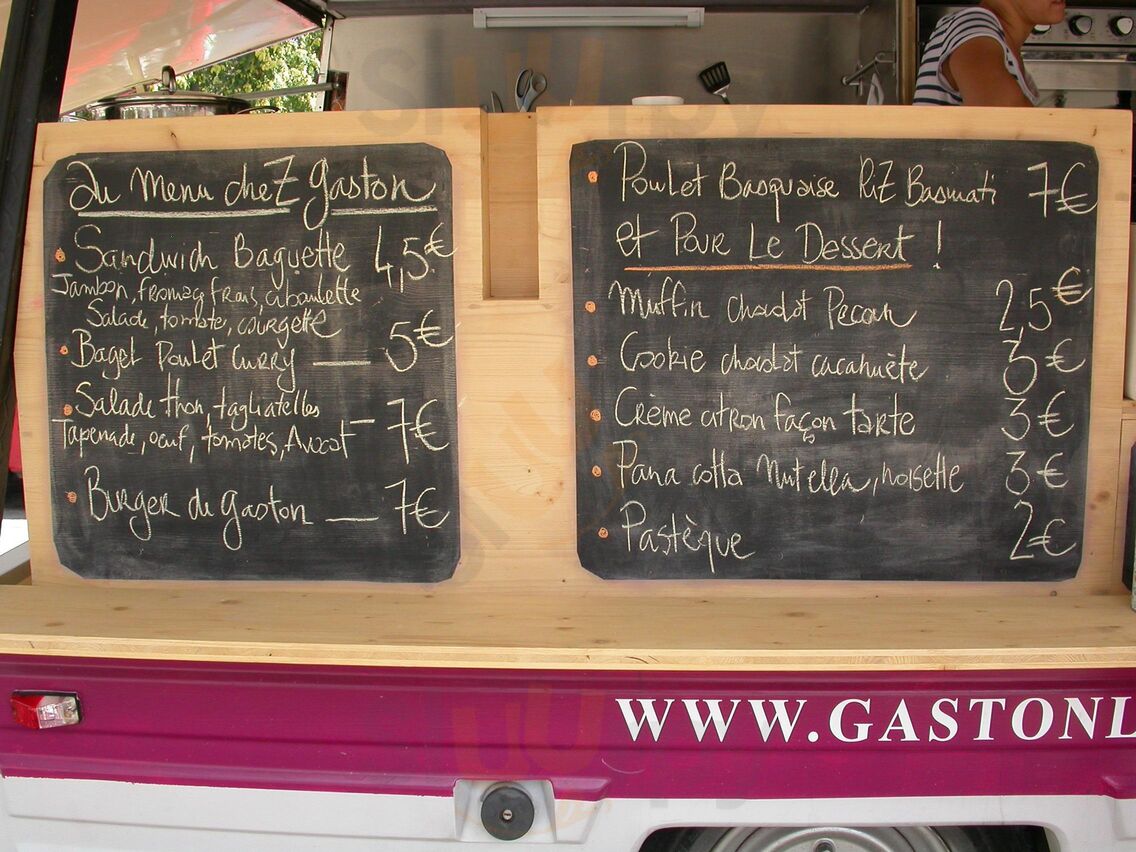 Au Menu chez Gaston
Sandwich Baguette 4,5€
Jambon, fromage frais, ciboulette
Salade, tomates, courgette
Bagel Poulet Curry — 5€
Salade thon, tagliatelles
Tapenade, oeuf, tomates, Avocat — 7€
Burger de Gaston — 7€
Poulet Basquaise Riz Basmati 7€
et Pour Le Dessert !
Muffin chocolat Pecan 2,5€
Cookie chocolat cacahuète 3€
Crème citron façon tarte 3€
Pana cotta Nutella, noisette 3€
Pastèque 2€
WWW.GASTONL